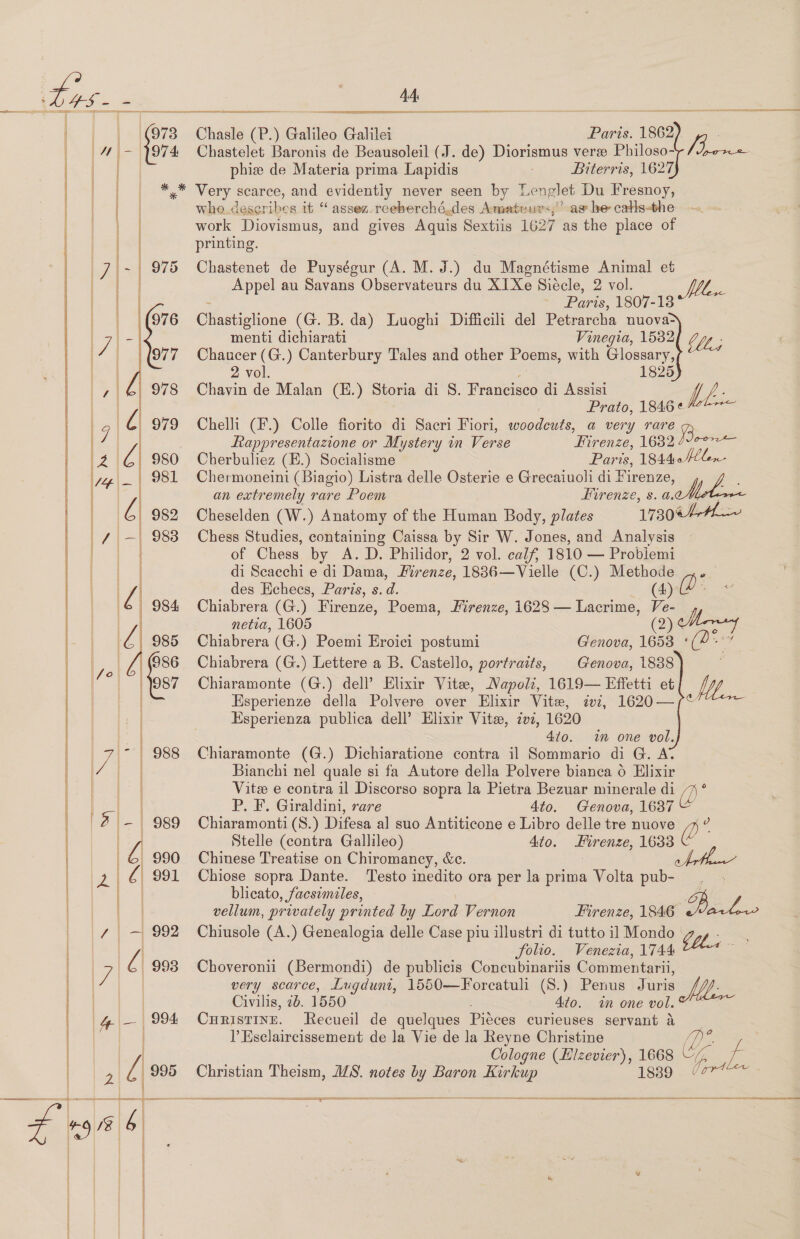 £45 - -
44
973 Chasle (P.) Galileo Galilei Paris. 1862
11 - 974 Chastelet Baronis de Beausoleil (J. de) Diorismus veræ Philoso- Boone
phiæ de Materia prima Lapidis Biterris, 1627
*** Very scarce, and evidently never seen by Lenglet Du Fresnoy,
who describes it “ assez recherché des Amateurs,” as he calls the
work Diovismus, and gives Aquis Sextiis 1627 as the place of
printing.
7 - 975 Chastenet de Puységur (A. M. J.) du Magnétisme Animal et
Appel au Savans Observateurs du XIXe Siècle, 2 vol.
Paris, 1807-13 Allen
976 Chastiglione (G. B. da) Luoghi Difficili del Petrarcha nuova-
menti dichiarati Vinegia, 1532
7 - 977 Chaucer (G.) Canterbury Tales and other Poems, with Glossary,
2 vol. 1825
, 6 978 Chavin de Malan (E.) Storia di S. Francisco di Assisi
Prato, 1846 Molini
9 6 979 Chelli (F.) Colle fiorito di Sacri Fiori, woodcuts, a very rare
Rappresentazione or Mystery in Verse Firenze, 1632 Boone
2 6 980 Cherbuliez (E.) Socialisme Paris, 1844 Allen
14 - 981 Chermoneini (Biagio) Listra delle Osterie e Grecaiuoli di Firenze,
an extremely rare Poem Firenze, s. a. Molini
6 982 Cheselden (W.) Anatomy of the Human Body, plates 1730 Arthur
1 - 983 Chess Studies, containing Caissa by Sir W. Jones, and Analysis
of Chess by A. D. Philidor, 2 vol. calf, 1810 — Problemi
di Scacchi e di Dama, Firenze, 1836—Vielle (C.) Methode
des Echecs, Paris, s. d. (4) Do
6 984 Chiabrera (G.) Firenze, Poema, Firenze, 1628 — Lacrime, Ve-
netia, 1605 (2) Money
6 985 Chiabrera (G.) Poemi Eroici postumi Genova, 1653 Do
986 Chiabrera (G.) Lettere a B. Castello, portraits, Genova, 1838
10 6 987 Chiaramonte (G.) dell’ Elixir Vitæ, Napoli, 1619— Effetti et
Esperienze della Polvere over Elixir Vitæ, ivi, 1620— Allen
Esperienza publica dell’ Elixir Vitæ, ivi, 1620
4to. in one vol.
7 - 988 Chiaramonte (G.) Dichiaratione contra il Sommario di G. A.
Bianchi nel quale si fa Autore della Polvere bianca ò Elixir
Vitæ e contra il Discorso sopra la Pietra Bezuar minerale di
P. F. Giraldini, rare 4to. Genova, 1637 Do
3 - 989 Chiaramonti (S.) Difesa al suo Antiticone e Libro delle tre nuove
Stelle (contra Gallileo) 4to. Firenze, 1633 Do
6 990 Chinese Treatise on Chiromancy, &c. Arthur
2 6 991 Chiose sopra Dante. Testo inedito ora per la prima Volta pub-
blicato, facsimiles,
vellum, privately printed by Lord Vernon Firenze, 1846 Barlow
1 - 992 Chiusole (A.) Genealogia delle Case piu illustri di tutto il Mondo
folio. Venezia, 1744
7 6 993 Choveronii (Bermondi) de publicis Concubinariis Commentarii,
very scarce, Lugduni, 1550—Forcatuli (S.) Penus Juris
Civilis, ib. 1550 4to. in one vol. Allen
4 - 994 Christine. Recueil de quelques Pièces curieuses servant à
l’Esclaircissement de la Vie de la Reyne Christine
Cologne (Elzevier), 1668 Do
2 6 995 Christian Theism, MS. notes by Baron Kirkup 1839
£ 49 18 6